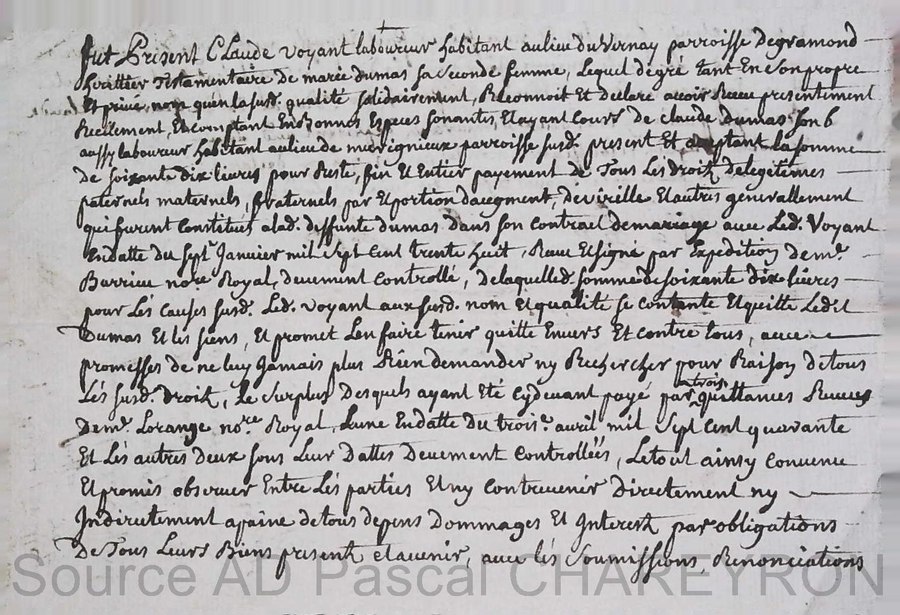 fut Présent Claude voyant laboureur habitant aulieu du vernay parroisse degramond
heritier testamentaire de marie dumas sa seconde femme, Lequel degré tant En son propre
Et privé nom quen lasusd. qualité solidairement, Reconnoit Et declare avoir Receu presentiment
Reellement Et comptant En bonnes Especes sonantes, Et ayant Cours de claude dumas son b
aussy laboureur habitant aulieu de murignieux parroisse susd. present Et aceptant la somme
de soixante dix livres pour Reste, fin Et Entier payement de Tous Les droits delegitimes
paternels maternels, fraternels par Et portion daugment, devirille Et autres generallement
qui furent Constitués alad. deffunte dumas dans son contrat demariage avec Led. Voyant
Endatte du sept Janvier mil sept Cent trente huit, Receu Et signé par Expedition de me.
Barrieu nore Royal, deuement controllé, delaquelled. somme de soixante dix livres
pour Les Causes susd. Led. voyant aux susd. nom Et qualité se contante Et quitte Ledit
Dumas Et les siens, Et promet Len faire tenir quitte Envers Et contre tous, avec
promesses de ne luy Jamais plus Rien demander ny Rechercher pour Raison de tous
Les susd. droits, Le surplus desquels ayant Eté cydevant payé par trois quittances Receues
De me. Lorange nore. Royal, Lune Endatte du trois. avril mil sept Cent quarante
Et Les autres deux sous Leur Dattes Deuement Controllées, Le tout ainsy convenu
Et promis observer Entre Les parties Et ny contrevenir directement ny
Indirectement apaine detous depens Dommages Et Interest par obligations
De Tous Leurs Biens present et avenir, avec les soumissions, Renonciations
Source AD Pascal CHAREYRON